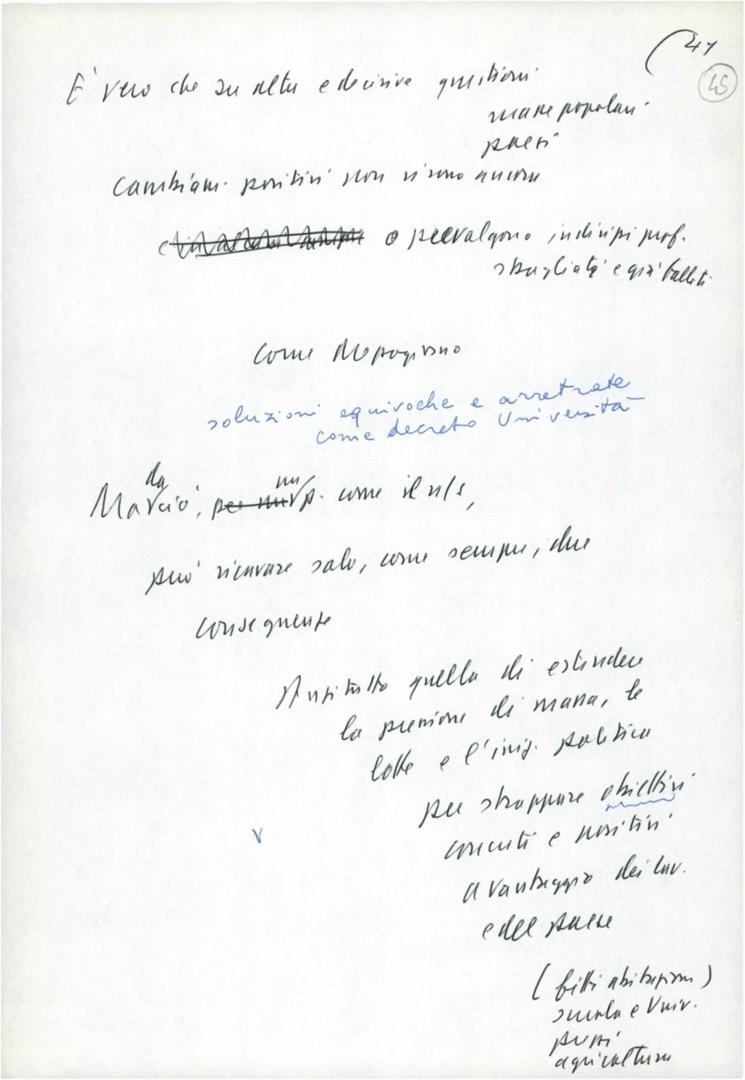 41
45
È vero che su altre e decisive questioni
masse popolari
paesi
Cambiam. positivi non vi sono ancora
o prevalgono indirizzi prof.
sbagliati e già falliti
come Mezzogiorno
soluzioni equivoche e arretrate
come decreto Università
Ma da ciò, un p. come il n/s,
può ricavare solo, come sempre, due
conseguenze
Anzitutto quella di estendere
la pressione di massa, le
lotte e l'iniz. politica
per strappare obiettivi
concreti e positivi
a vantaggio dei lav.
e del paese
(fitti abitazioni)
scuola e Univ.
prezzi
agricoltura